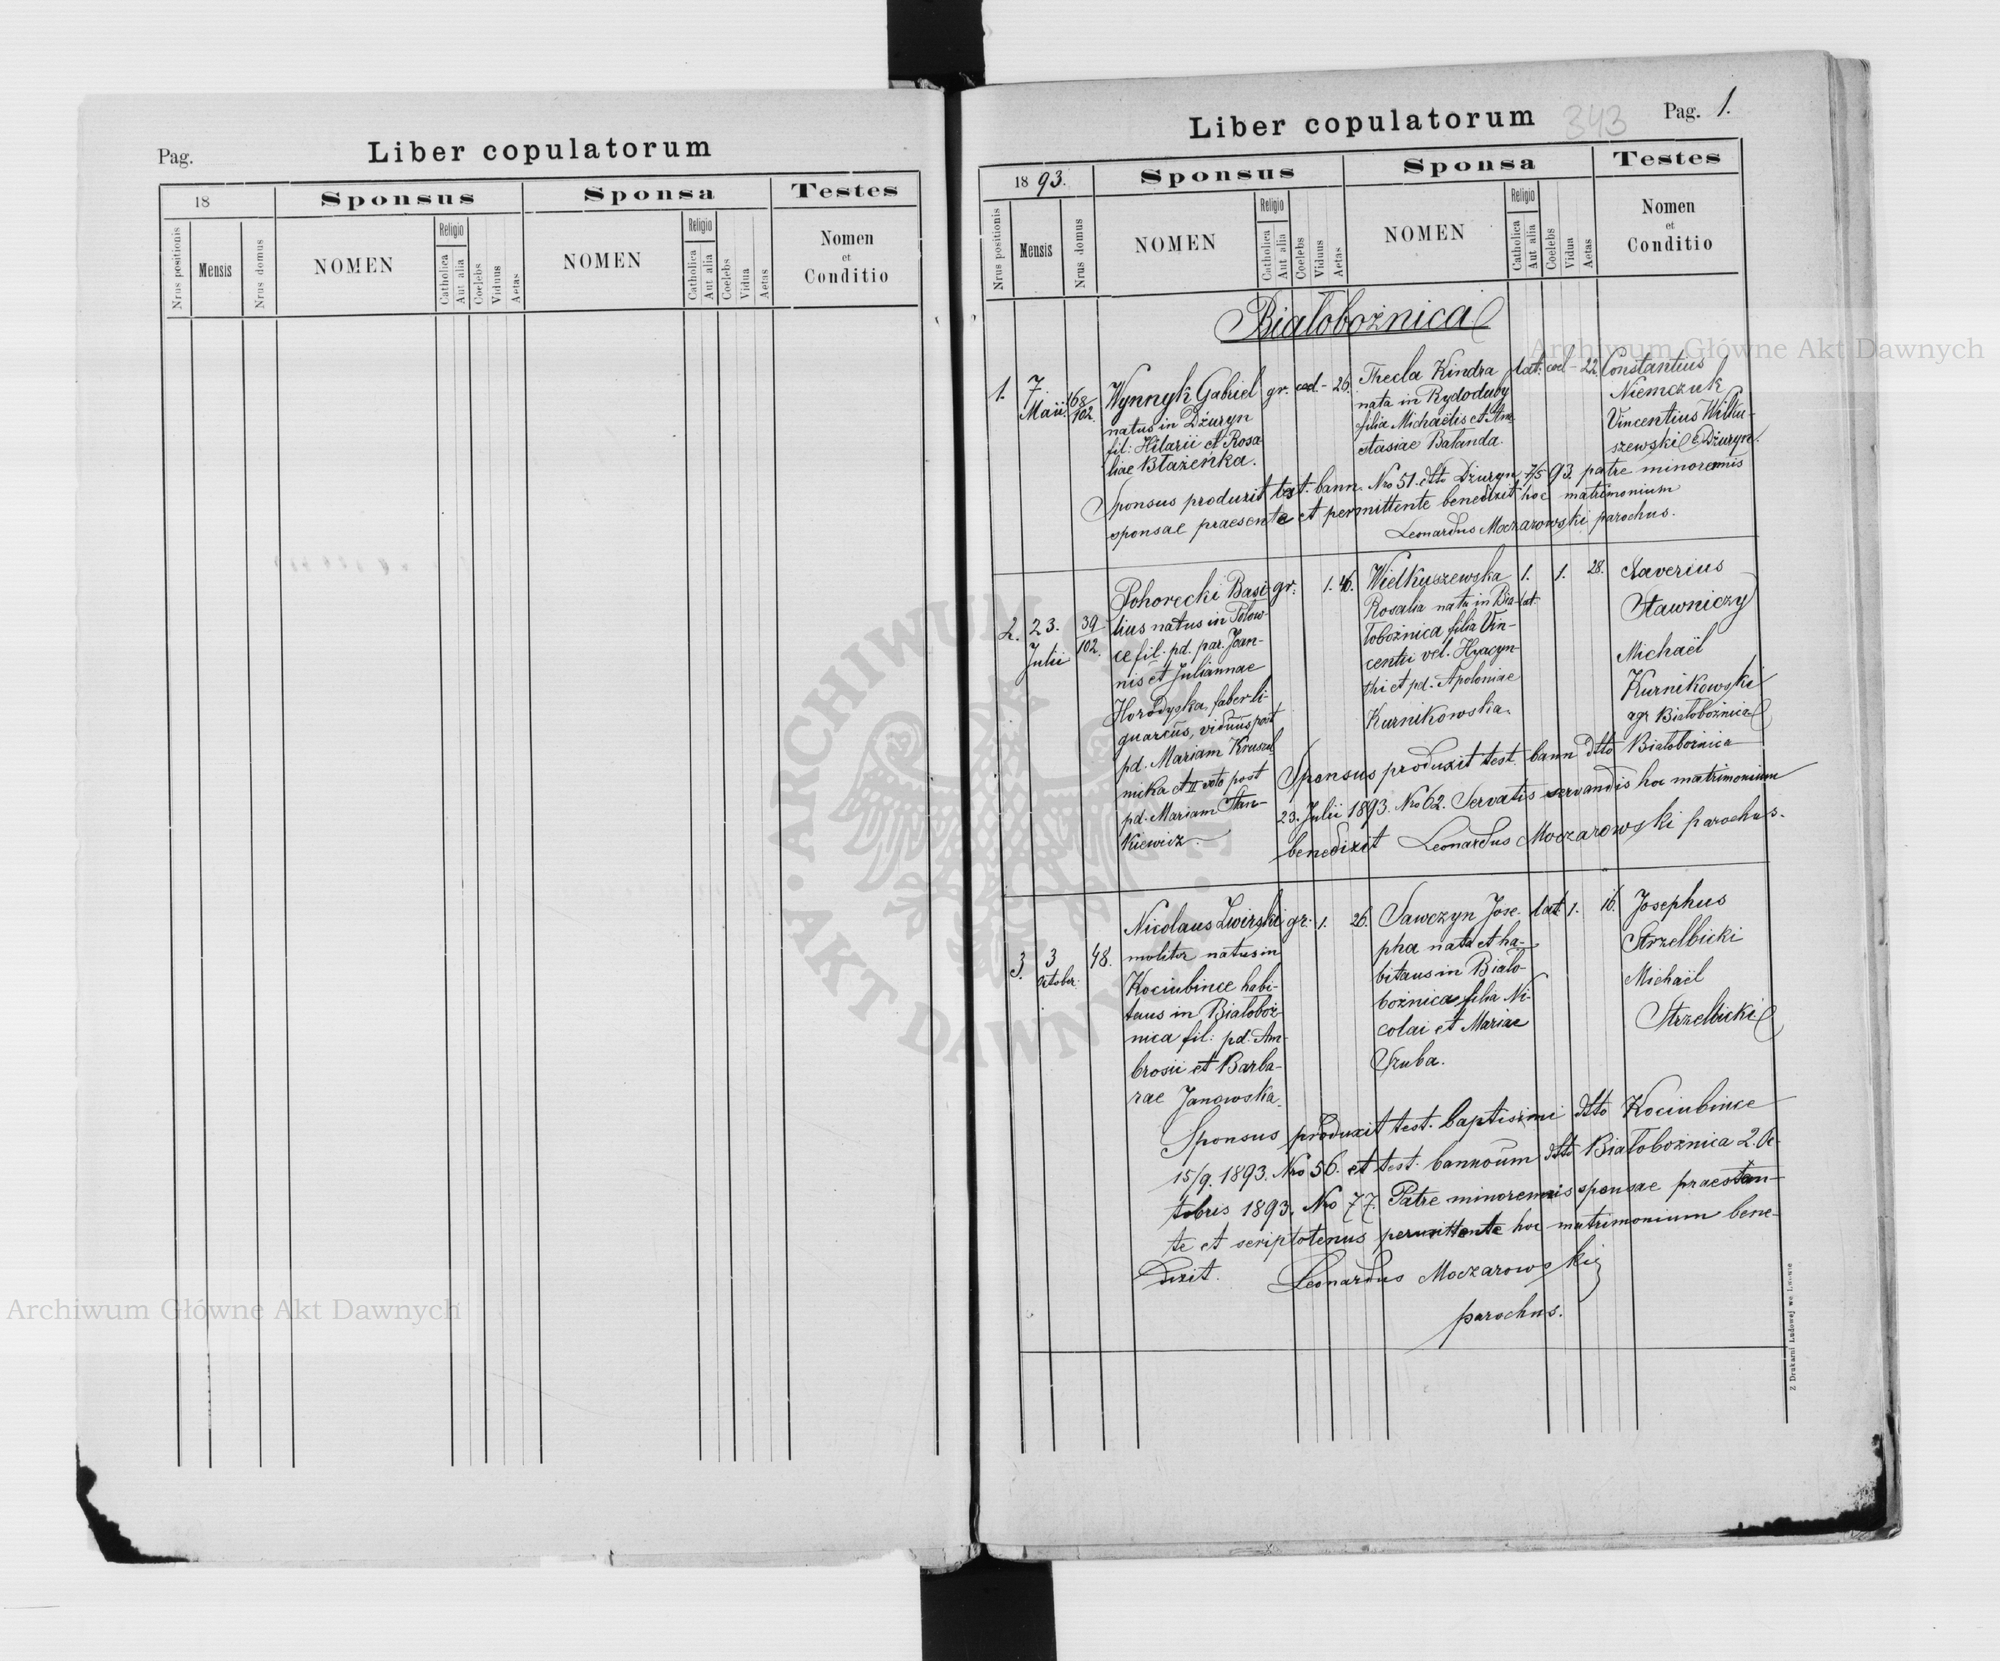 Pag.
Liber copulatorum
18
Sponsus
Sponsa
Testes
Nrus positionis
Mensis
Nrus domus
NOMEN
Religio
Catholica
Aut alia
Coelebs
Viduus
Aetas
NOMEN
Religio
Catholica
Aut alia
Coelebs
Vidua
Aetas
Nomen
et
Conditio
Liber copulatorum
343
Pag. 1.
1893.
Sponsus
Sponsa
Testes
Nrus positionis
Mensis
Nrus domus
NOMEN
Religio
Catholica
Aut alia
Coelebs
Viduus
Aetas
NOMEN
Religio
Catholica
Aut alia
Coelebs
Vidua
Aetas
Nomen
et
Conditio
Białobożnica
1.
7.
Maii
168/102.
Wynnyk Gabriel
natus in Dżuryn
fil: Hilarii et Rosa
liae Błażeńka.
gr. coel - 26.
Thecla Kindra
nata in Rydoduby
filia Michaëlis et Ana
stasiae Bałanda.
lat. coel - 22.
Constantius
Niemczuk
Vincentius Wilku-
szewski Dżuryn.
Sponsus produxit test. bann. Nro 51. dtto Dżuryn 7/5 93 patre minorennis
sponsae praesente et permittente benedixit hoc matrimonium
Leonardus Moczarowski parochus.
2.
23.
Julii
39/102.
Pohorecki Basi
lius natus in Połow-
ce fil. pd. par. Joan-
nis et Juliannae
Horodyska, faber li-
gnarius, viduus post
pd. Mariam Kruszel
nicka et II voto post
pd. Mariam Stan-
kiewicz
gr. 1. 46.
Wielkuszewska
Rosalia nata in Bia-
łobożnica filia Vin-
centii vel. Hyacyn-
thi et pd. Apoloniae
Kurnikowska.
1. lat. 1. 28.
Xaverius
Sławniczy
Michaël
Kurnikowski
agr Białobożnica
Sponsus produxit test. bann dtto Białobożnica
23. Julii 1893. Nro 62. Servatis servandis hoc matrimonium
benedixit Leonardus Moczarowski parochus.
3.
3
October.
48.
Nicolaus Zwirski
molitor natus in
Kociubince habi-
tans in Białoboż-
nica fil: pd. Am-
brosii et Barba-
rae Janowska.
gr. 1. 26.
Sawczyn Jose-
pha nata et ha-
bitans in Biało-
bożnica filia Ni-
colai et Mariae
Szuba.
lat 1. 16.
Josephus
Strzelbicki
Michaël
Strzelbicki
Sponsus produxit test. baptismi dtto Kociubince
15/9. 1893. Nro 56. et test. bannoum dtto Białobożnica 2. Oc-
tobris 1893. Nro 77. Patre minorennis sponsae praestan-
te et scriptotenus permittente hoc matrimonium bene-
dixit. Leonardus Moczarowski
parochus.
Z Drukarni Ludowej we Lwowie
Archiwum Główne Akt Dawnych
Archiwum Główne Akt Dawnych
ARCHIWUM
AKT DAWNYCH